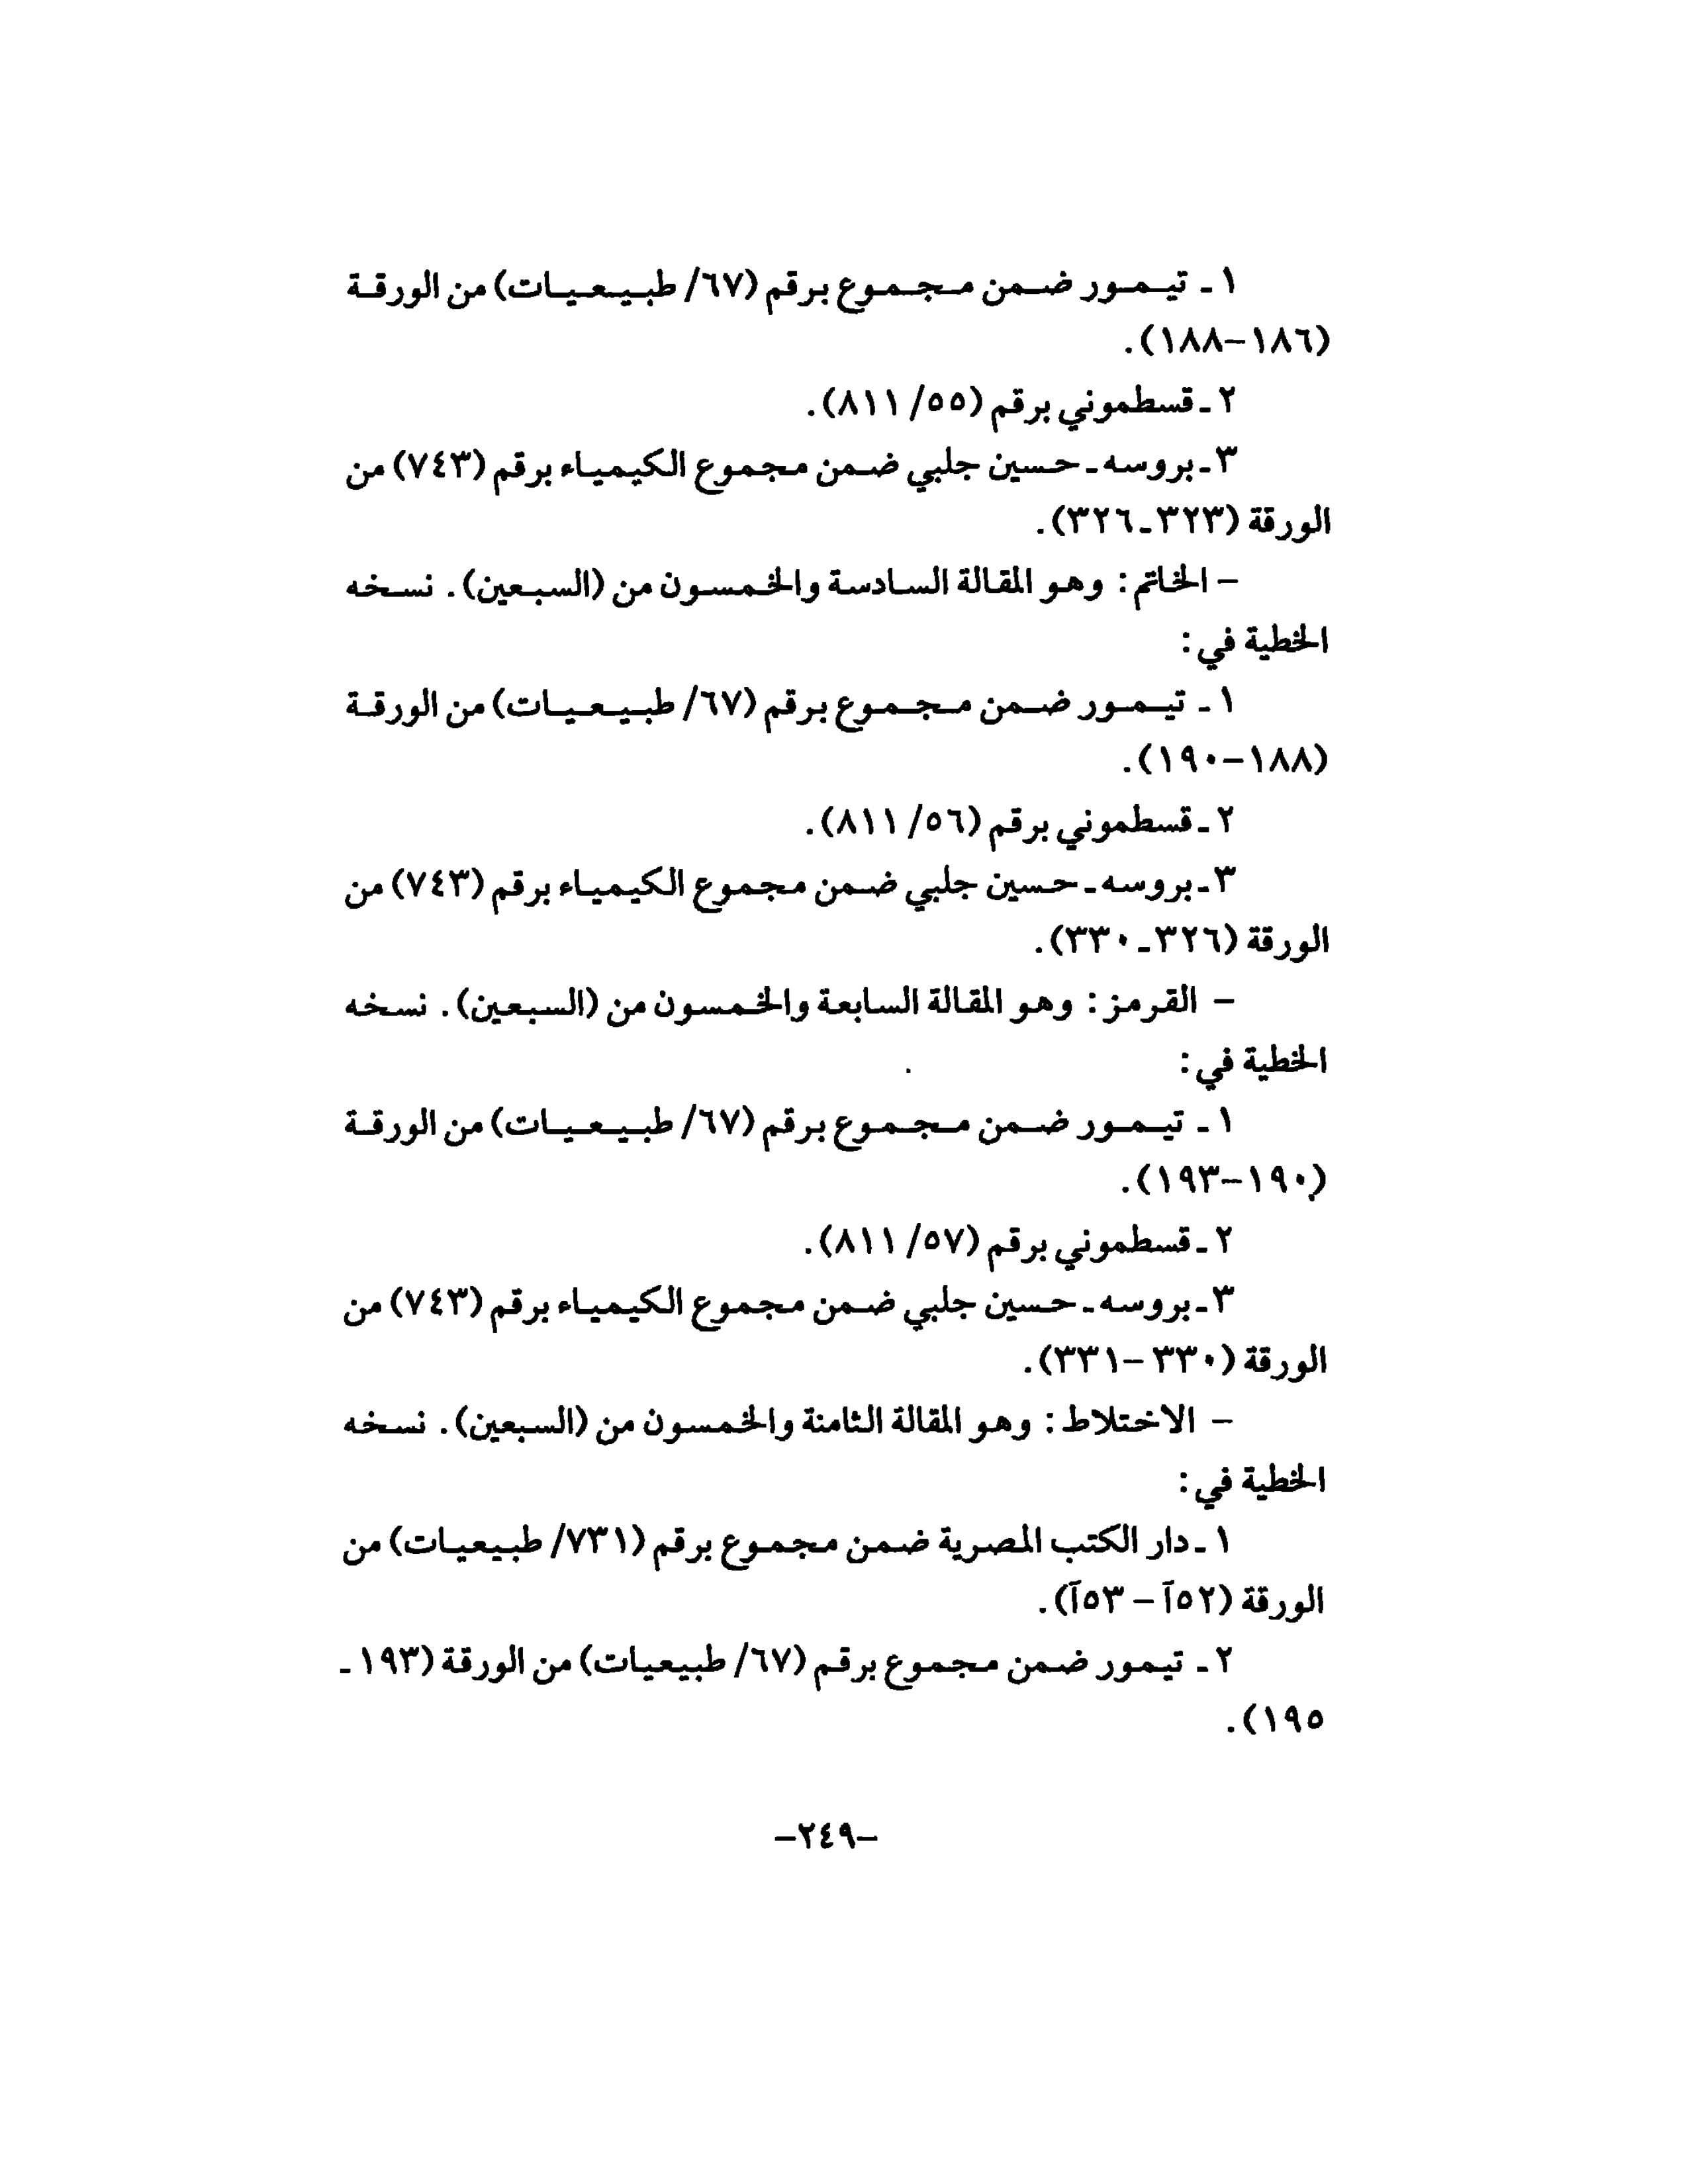 ١ ـ تيمور ضمن مجموع برقم (٦٧/ طبيعيات) من الورقة
(١٨٦-١٨٨).
٢ ـ قسطموني برقم (٥٥/ ٨١١).
٣ ـ بروسه ـ حسين جلبي ضمن مجموع الكيمياء برقم (٧٤٣) من
الورقة (٣٢٣ـ٣٢٦).
- الخاتم: وهو المقالة السادسة والخمسون من (السبعين). نسخه
الخطية في:
١ ـ تيمور ضمن مجموع برقم (٦٧/ طبيعيات) من الورقة
(١٨٨-١٩٠).
٢ ـ قسطموني برقم (٥٦/ ٨١١).
٣ ـ بروسه ـ حسين جلبي ضمن مجموع الكيمياء برقم (٧٤٣) من
الورقة (٣٢٦ـ٣٣٠).
- القرمز: وهو المقالة السابعة والخمسون من (السبعين). نسخه
الخطية في:
١ ـ تيمور ضمن مجموع برقم (٦٧/ طبيعيات) من الورقة
(١٩٠-١٩٣).
٢ ـ قسطموني برقم (٥٧/ ٨١١).
٣ ـ بروسه ـ حسين جلبي ضمن مجموع الكيمياء برقم (٧٤٣) من
الورقة (٣٣٠ -٣٣١).
- الاختلاط: وهو المقالة الثامنة والخمسون من (السبعين). نسخه
الخطية في:
١ ـ دار الكتب المصرية ضمن مجموع برقم (٧٣١/ طبيعيات) من
الورقة (٥٢آ - ٥٣آ).
٢ ـ تيمور ضمن مجموع برقم (٦٧/ طبيعيات) من الورقة (١٩٣ ـ
١٩٥).
-٢٤٩-